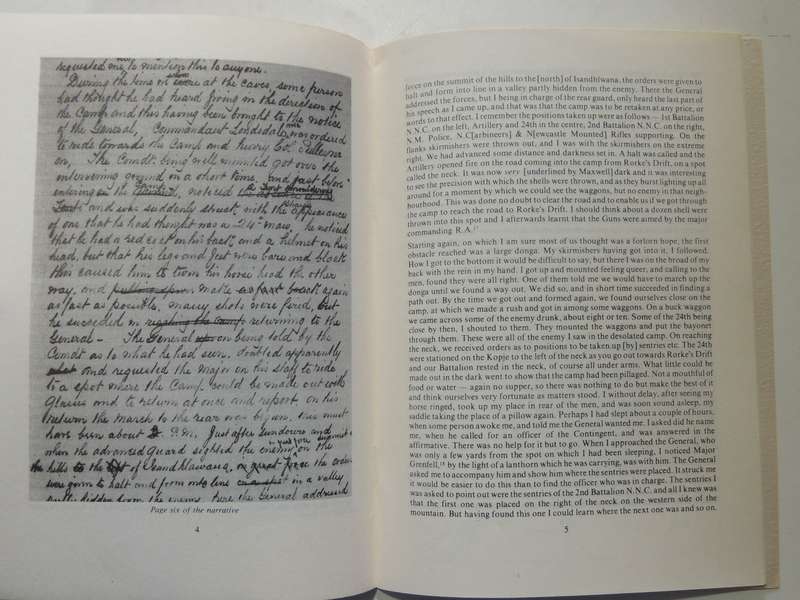 requested me to mention this to anyone.
During the time on were at the caves, some person
had thought he had heard firing in the direction of
the Camp and this having been brought to the notice
of the General, Commandant Lonsdale was ordered
to ride towards the Camp and
on. The Comdt. being well mounted got over the
intervening ground in a short time, and just before
entering in the noticed
and was suddenly struck with the strange appearances
of one that he had thought was a 24th man, he noticed
that he had a red coat on his back, and a helmet on his
head, but that his legs and feet were bare and black
this caused him to turn his horse's head the other
way, and make back again
as fast as possible, many shots were fired, but
he succeeded in returning to the
General – The General on being told by the
Comdt as to what he had seen, doubted apparently
and requested the Major on his staff to ride
to a spot where the Camp could be made out with
Glasses and to return at once and report on his
return the march to the rear was begun, this must
have been about P.M. Just after Sundown and
when the advanced guard sighted the enemy in great force on the summit
the hills to the of Isandhlawana, the orders
were given to halt and form into line in a valley
partly hidden from the enemy, here the General addressed
Page six of the narrative
4
force on the summit of the hills to the [north] of Isandhlwana, the orders were given to
halt and form into line in a valley partly hidden from the enemy. There the General
addressed the forces, but I being in charge of the rear guard, only heard the last part of
his speech as I came up, and that was that the camp was to be retaken at any price, or
words to that effect. I remember the positions taken up were as follows — 1st Battalion
N.N.C. on the left, Artillery and 24th in the centre, 2nd Battalion N.N.C. on the right,
N.M. Police, N.C[arbineers] & N[ewcastle Mounted] Rifles supporting. On the
flanks skirmishers were thrown out, and I was with the skirmishers on the extreme
right. We had advanced some distance and darkness set in. A halt was called and the
Artillery opened fire on the road coming into the camp from Rorke's Drift, on a spot
called the neck. It was now very [underlined by Maxwell] dark and it was interesting
to see the precision with which the shells were thrown, and as they burst lighting up all
around for a moment by which we could see the waggons, but no enemy in that neigh-
bourhood. This was done no doubt to clear the road and to enable us if we got through
the camp to reach the road to Rorke's Drift. I should think about a dozen shell were
thrown into this spot and I afterwards learnt that the Guns were aimed by the major
commanding R.A.
Starting again, on which I am sure most of us thought was a forlorn hope, the first
obstacle reached was a large donga. My skirmishers having got into it, I followed.
How I got to the bottom it would be difficult to say, but there I was on the broad of my
back with the rein in my hand. I got up and mounted feeling queer, and calling to the
men, found they were all right. One of them told me we would have to march up the
donga until he found a way out. We did so, and in short time succeeded in finding a
path out. By the time we got out and formed again, we found ourselves close on the
camp, at which we made a rush and got in among some waggons. On a buck waggon
we came across some of the enemy drunk, about eight or ten. Some of the 24th being
close by then, I shouted to them. They mounted the waggons and put the bayonet
through them. These were all of the enemy I saw in the desolated camp. On reaching
the neck, we received orders as to positions to be taken up [by] sentries etc. The 24th
were stationed on the Kopje to the left of the neck as you go out towards Rorke's Drift
and our Battalion rested in the neck, of course all under arms. What little could be
made out in the dark went to show that the camp had been pillaged. Not a mouthful of
food or water — again no supper, so there was nothing to do but make the best of it
and think ourselves very fortunate as matters stood. I without delay, after seeing my
horse ringed, took up my place in rear of the men, and was soon sound asleep, my
saddle taking the place of a pillow again. Perhaps I had slept about a couple of hours,
when some person awoke me, and told me the General wanted me. I asked did he name
me, when he called for an officer of the Contingent, and was answered in the
affirmative. There was no help for it but to go. When I approached the General, who
was only a few yards from the spot on which I had been sleeping, I noticed Major
Grenfell,¹⁸ by the light of a lanthorn which he was carrying, was with him. The General
asked me to accompany him and show him where the sentries were placed. It struck me
it would be easier to do this than to find the officer who was in charge. The sentries I
was asked to point out were the sentries of the 2nd Battalion N.N.C. and all I knew was
that the first one was placed on the right of the neck on the western side of the
mountain. But having found this one I could learn where the next one was and so on.
5